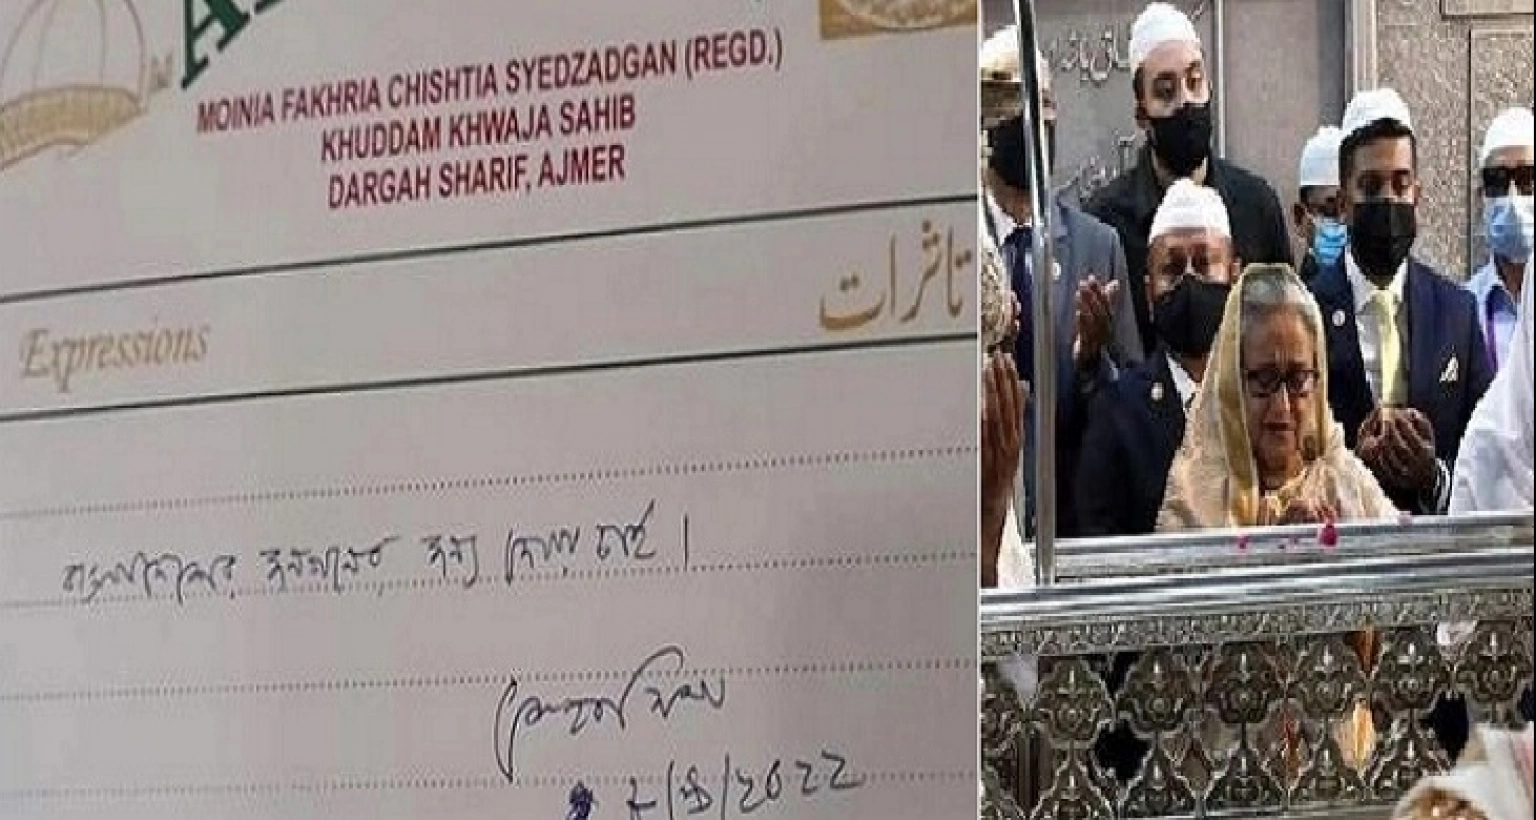 MOINIA FAKHRIA CHISHTIA SYEDZADGAN (REGD.)
KHUDDAM KHWAJA SAHIB
DARGAH SHARIF, AJMER
Expressions
تاثرات
বাংলাদেশের জনগণের জন্য দোয়া চাই।
শেখ হাসিনা
৮/৯/২০২২